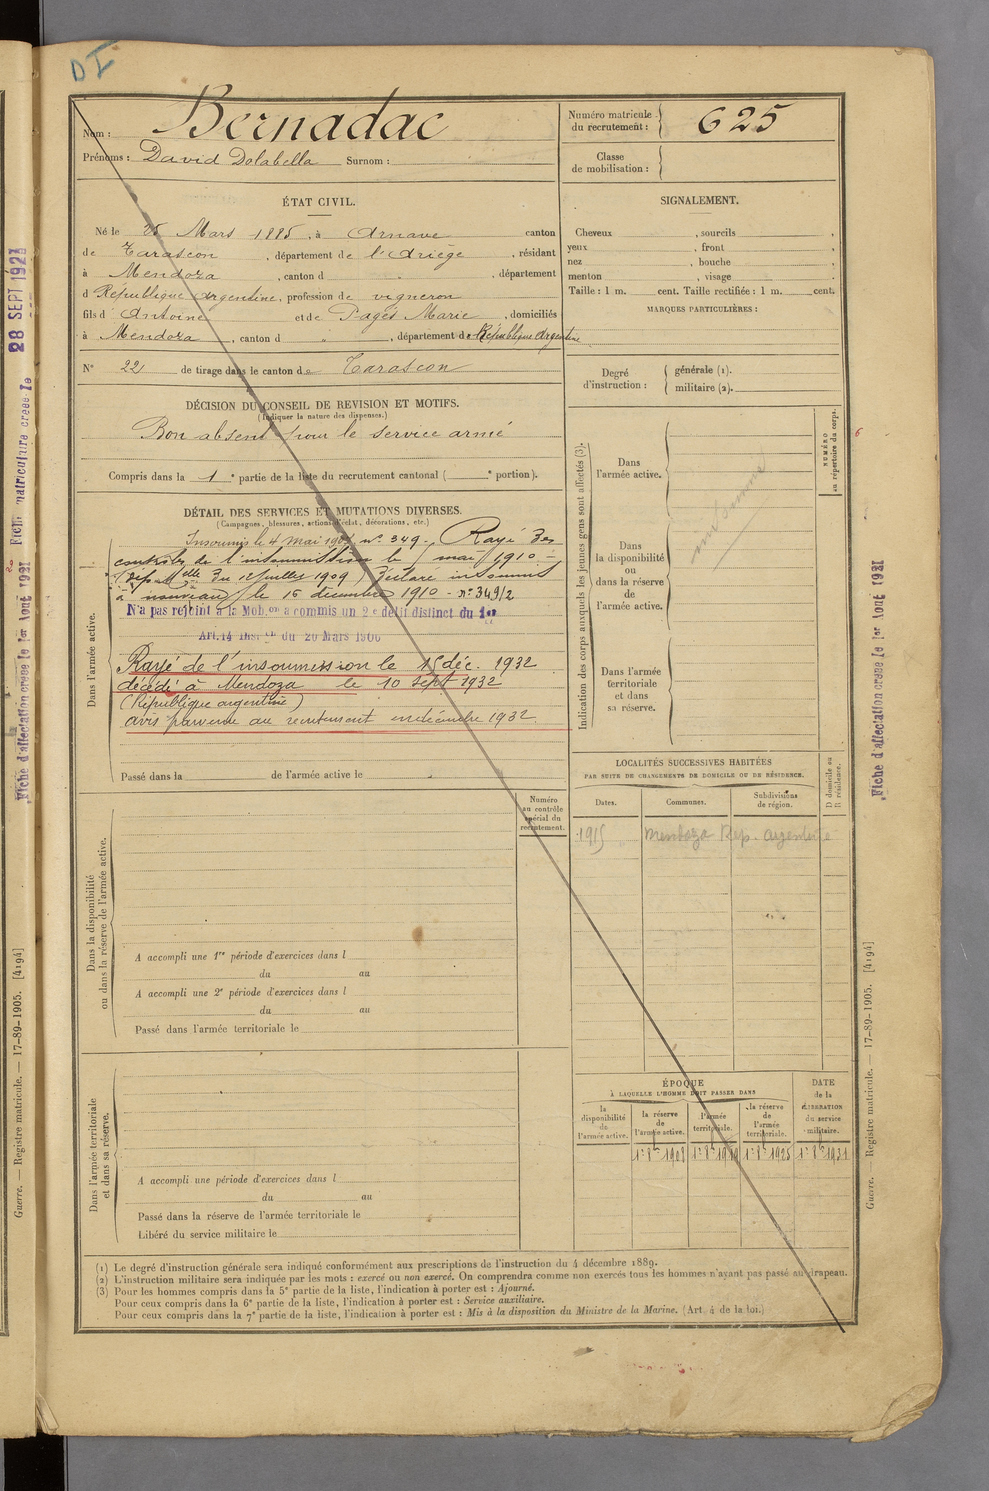 DI
Nom : Bernadac
Prénoms : David Dolabella Surnom :
Numéro matricule du recrutement : 625
Classe de mobilisation :
ÉTAT CIVIL.
Né le 25 Mars 1885, à Arnave canton
de Tarascon, département de l'Ariège, résidant
à Mendoza, canton d , département
d République Argentine, profession de vigneron
fils d' Antoine et de Pagès Marie, domiciliés
à Mendoza, canton d " , département de République Argentine
N° 221 de tirage dans le canton de Tarascon
DÉCISION DU CONSEIL DE REVISION ET MOTIFS.
(Indiquer la nature des dispenses.)
Bon absent pour le service armé
Compris dans la 1e partie de la liste du recrutement cantonal ( e portion).
SIGNALEMENT.
Cheveux , sourcils ,
yeux , front ,
nez , bouche ,
menton , visage .
Taille : 1 m. cent. Taille rectifiée : 1 m. cent.
MARQUES PARTICULIÈRES :
Degré d'instruction : générale (1).
militaire (2).
DÉTAIL DES SERVICES ET MUTATIONS DIVERSES.
(Campagnes, blessures, actions d'éclat, décorations, etc.)
Dans l'armée active.
Insoumis le 4 mai 190 n° 349. Rayé des
contrôles de l'insoumission le mai 1910 -
du 12 juillet 1909) Déclaré insoumis
à nouveau le 16 décembre 1910 - n° 349/2
N'a pas rejoint à la Mob.on a commis un 2e délit distinct du 1er
Art. 14 Inst.on du 20 Mars 1906
Rayé de l'insoumission le 15 déc. 1932
décédé à Mendoza le 10 Sept 1932
(République argentine)
avis parvenu au recrutement en décembre 1932.
Passé dans la de l'armée active le
Numéro au contrôle spécial du recrutement.
Dans la disponibilité ou dans la réserve de l'armée active.
A accompli une 1re période d'exercices dans l
du au
A accompli une 2e période d'exercices dans l
du au
Passé dans l'armée territoriale le
Dans l'armée territoriale et dans sa réserve.
A accompli une période d'exercices dans l
du au
Passé dans la réserve de l'armée territoriale le
Libéré du service militaire le
Indication des corps auxquels les jeunes gens sont affectés (3).
NUMÉRO au répertoire du corps.
6
Dans l'armée active.
Dans la disponibilité ou dans la réserve de l'armée active.
Dans l'armée territoriale et dans sa réserve.
LOCALITÉS SUCCESSIVES HABITÉES
PAR SUITE DE CHANGEMENTS DE DOMICILE OU DE RÉSIDENCE.
Dates. Communes. Subdivisions de région. D domicile ou R résidence.
1915 Mendoza Rep. argentine
ÉPOQUE
À LAQUELLE L'HOMME DOIT PASSER DANS
DATE de la LIBÉRATION du service militaire.
la disponibilité de l'armée active. la réserve de l'armée active. l'armée territoriale. la réserve de l'armée territoriale.
(1) Le degré d'instruction générale sera indiqué conformément aux prescriptions de l'instruction du 4 décembre 1889.
(2) L'instruction militaire sera indiquée par les mots : exercé ou non exercé. On comprendra comme non exercés tous les hommes n'ayant pas passé au drapeau.
(3) Pour les hommes compris dans la 5e partie de la liste, l'indication à porter est : Ajourné.
Pour ceux compris dans la 6e partie de la liste, l'indication à porter est : Service auxiliaire.
Pour ceux compris dans la 7e partie de la liste, l'indication à porter est : Mis à la disposition du Ministre de la Marine. (Art. 4 de la loi.)
Fiche d'affectation créée le 1er Août 1931
Guerre. — Registre matricule. — 17-89-1905. [4194]
Fiche matriculaire créée le 28 SEPT 1921
Fiche d'affectation créée le 1er Août 1931
Guerre. — Registre matricule. — 17-89-1905. [4194]